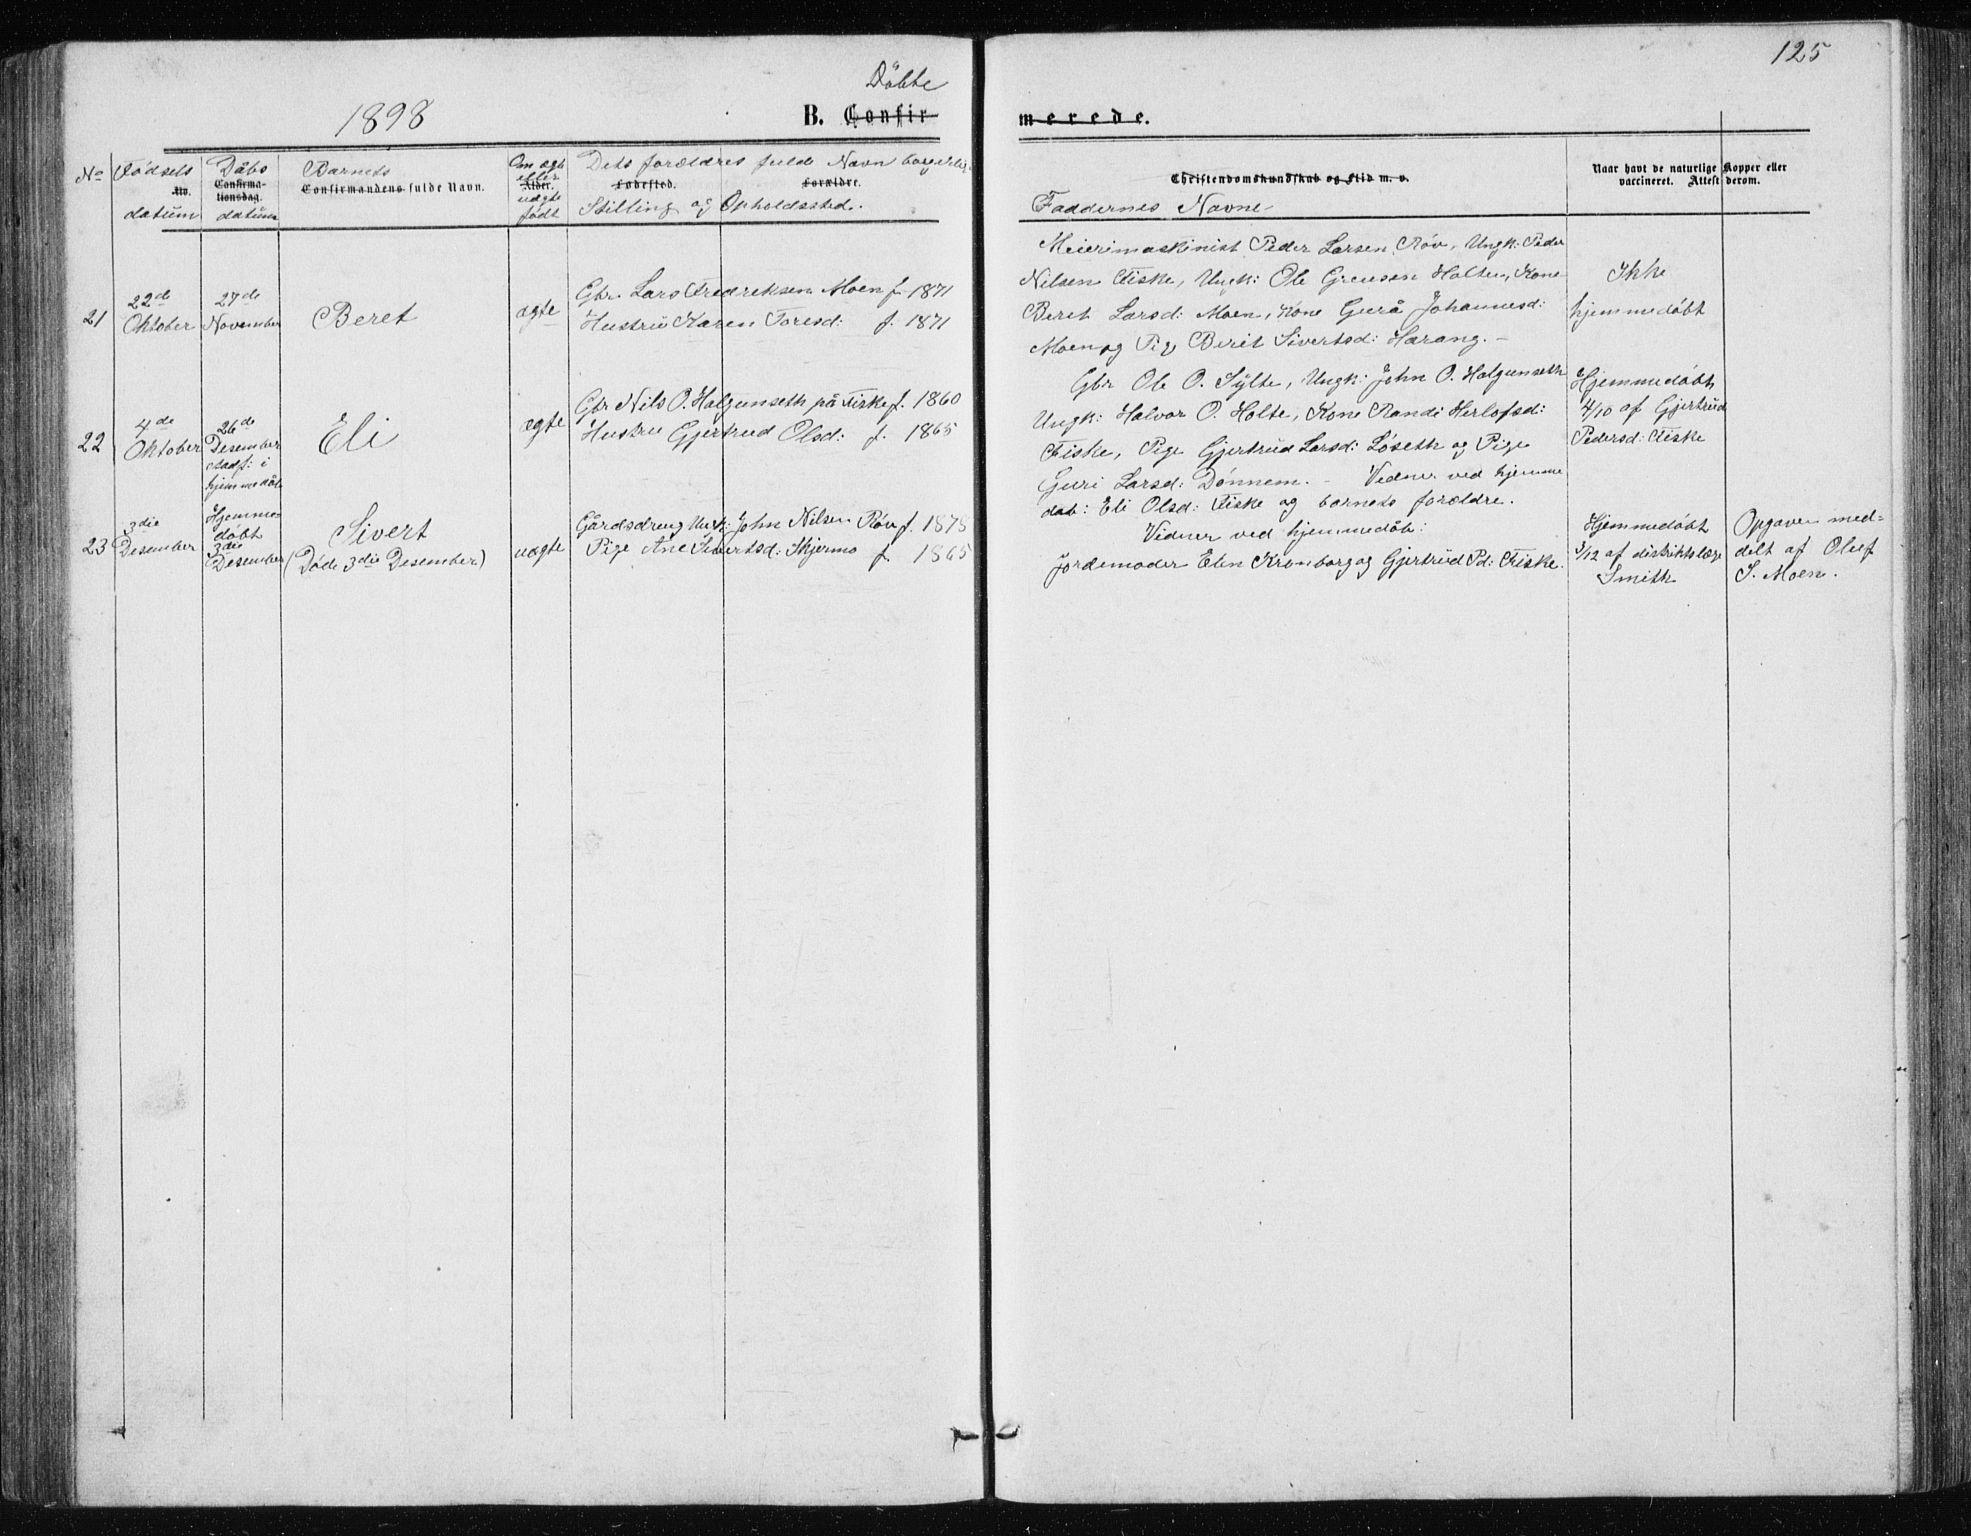 125
Döbte
1898
B. Confir
merede.
No
Fødsels
No.
datum
Dåbs
Confirma-
tionsdag.
datum
Barnets
Confirmandens fulde Navn.
Om ægte
eller
Alder.
uægte
født
Dets forældres fulde Navn borgerlig
Fødested. Forældre.
Stilling og Opholdssted.
Christendomskundskab og Flid m. v.
Faddernes Navne
Naar havt de naturlige Kopper eller
vaccineret. Attest derom.
21
22de
Oktober
27de
November
Beret
ægte
Gbr. Lars Fredreksen Moen f. 1871
Hustru Karen Toresd: f. 1871
Meierimaskinist Peder Larsen Røv, Ungk: Peder
Nilsen Fiske, Ungk: Ole Holten, Kone
Beret Larsd: Moen, Kone Gurå Johannesd:
Moen og Pig Berit Sivertsd: Harang. –
Ikke
hjemmedøbt
22
4de
Oktober
26de
Desember
stadf: i
hjemmedåb
Eli
ægte
Gbr Nils O. Halgunseth på Fiske f. 1860
Hustru Gjertrud Olsd: f. 1865
Gbr Ole O. Sylte, Ungk: John O. Halgunseth
Ungk: Halvor O. Holte, Kone Randi Herlofsd:
Fiske, Pige Gjertrud Larsd: Løseth og Pige
Guri Larsd: Dønnem. – Vidner ved hjemme
dåb: Eli Olsd: Fiske og barnets forældre.
Hjemmedøbt
4/10 af Gjertrud
Pedersd: Fiske
23
3die
Desember
Hjemme-
døbt
3die
Desember
Sivert
(Døde 3die Desember)
uægte
Gårdsdreng Ungk: John Nilsen Røv f. 1875
Pige Ane Sivertsd: Skjermo f. 1865
Vidner ved hjemmedåb:
Jordemoder Elen Kronborg og Gjertrud Pd: Fiske.
Hjemmedøbt
3/12 af distriktslæge
Smith
Opgaven med-
delt af Oluf
S. Moen.